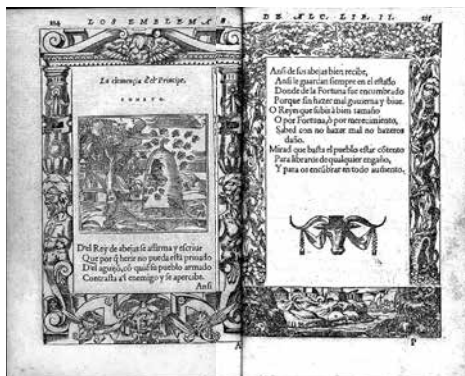 224 LOS EMBLEMAS
La clemencia del Principe.
SONETO.
Del Rey de abejas se affirma y escriue
Que por q̃ herir no pueda está priuado
Del aguijō, cō quiē su pueblo armado
Contrasta al enemigo y se apercibe.
Ansi
A
DE ALC. LIB. II. 225
Ansi de sus abejas bien recibe,
Ansi le guardan siempre en el estado
Donde de la Fortuna fue encumbrado
Porque sin hazer mal gouierna y biue.
O Reyes que subis à bien tamaño
O por Fortuna, ò por merecimiento,
Sabed con no hazer mal no hazeros
daño.
Mirad que basta el pueblo estar cōtento
Para libraros de qualquier engaño,
Y para os encūbrar en todo augmento.
P